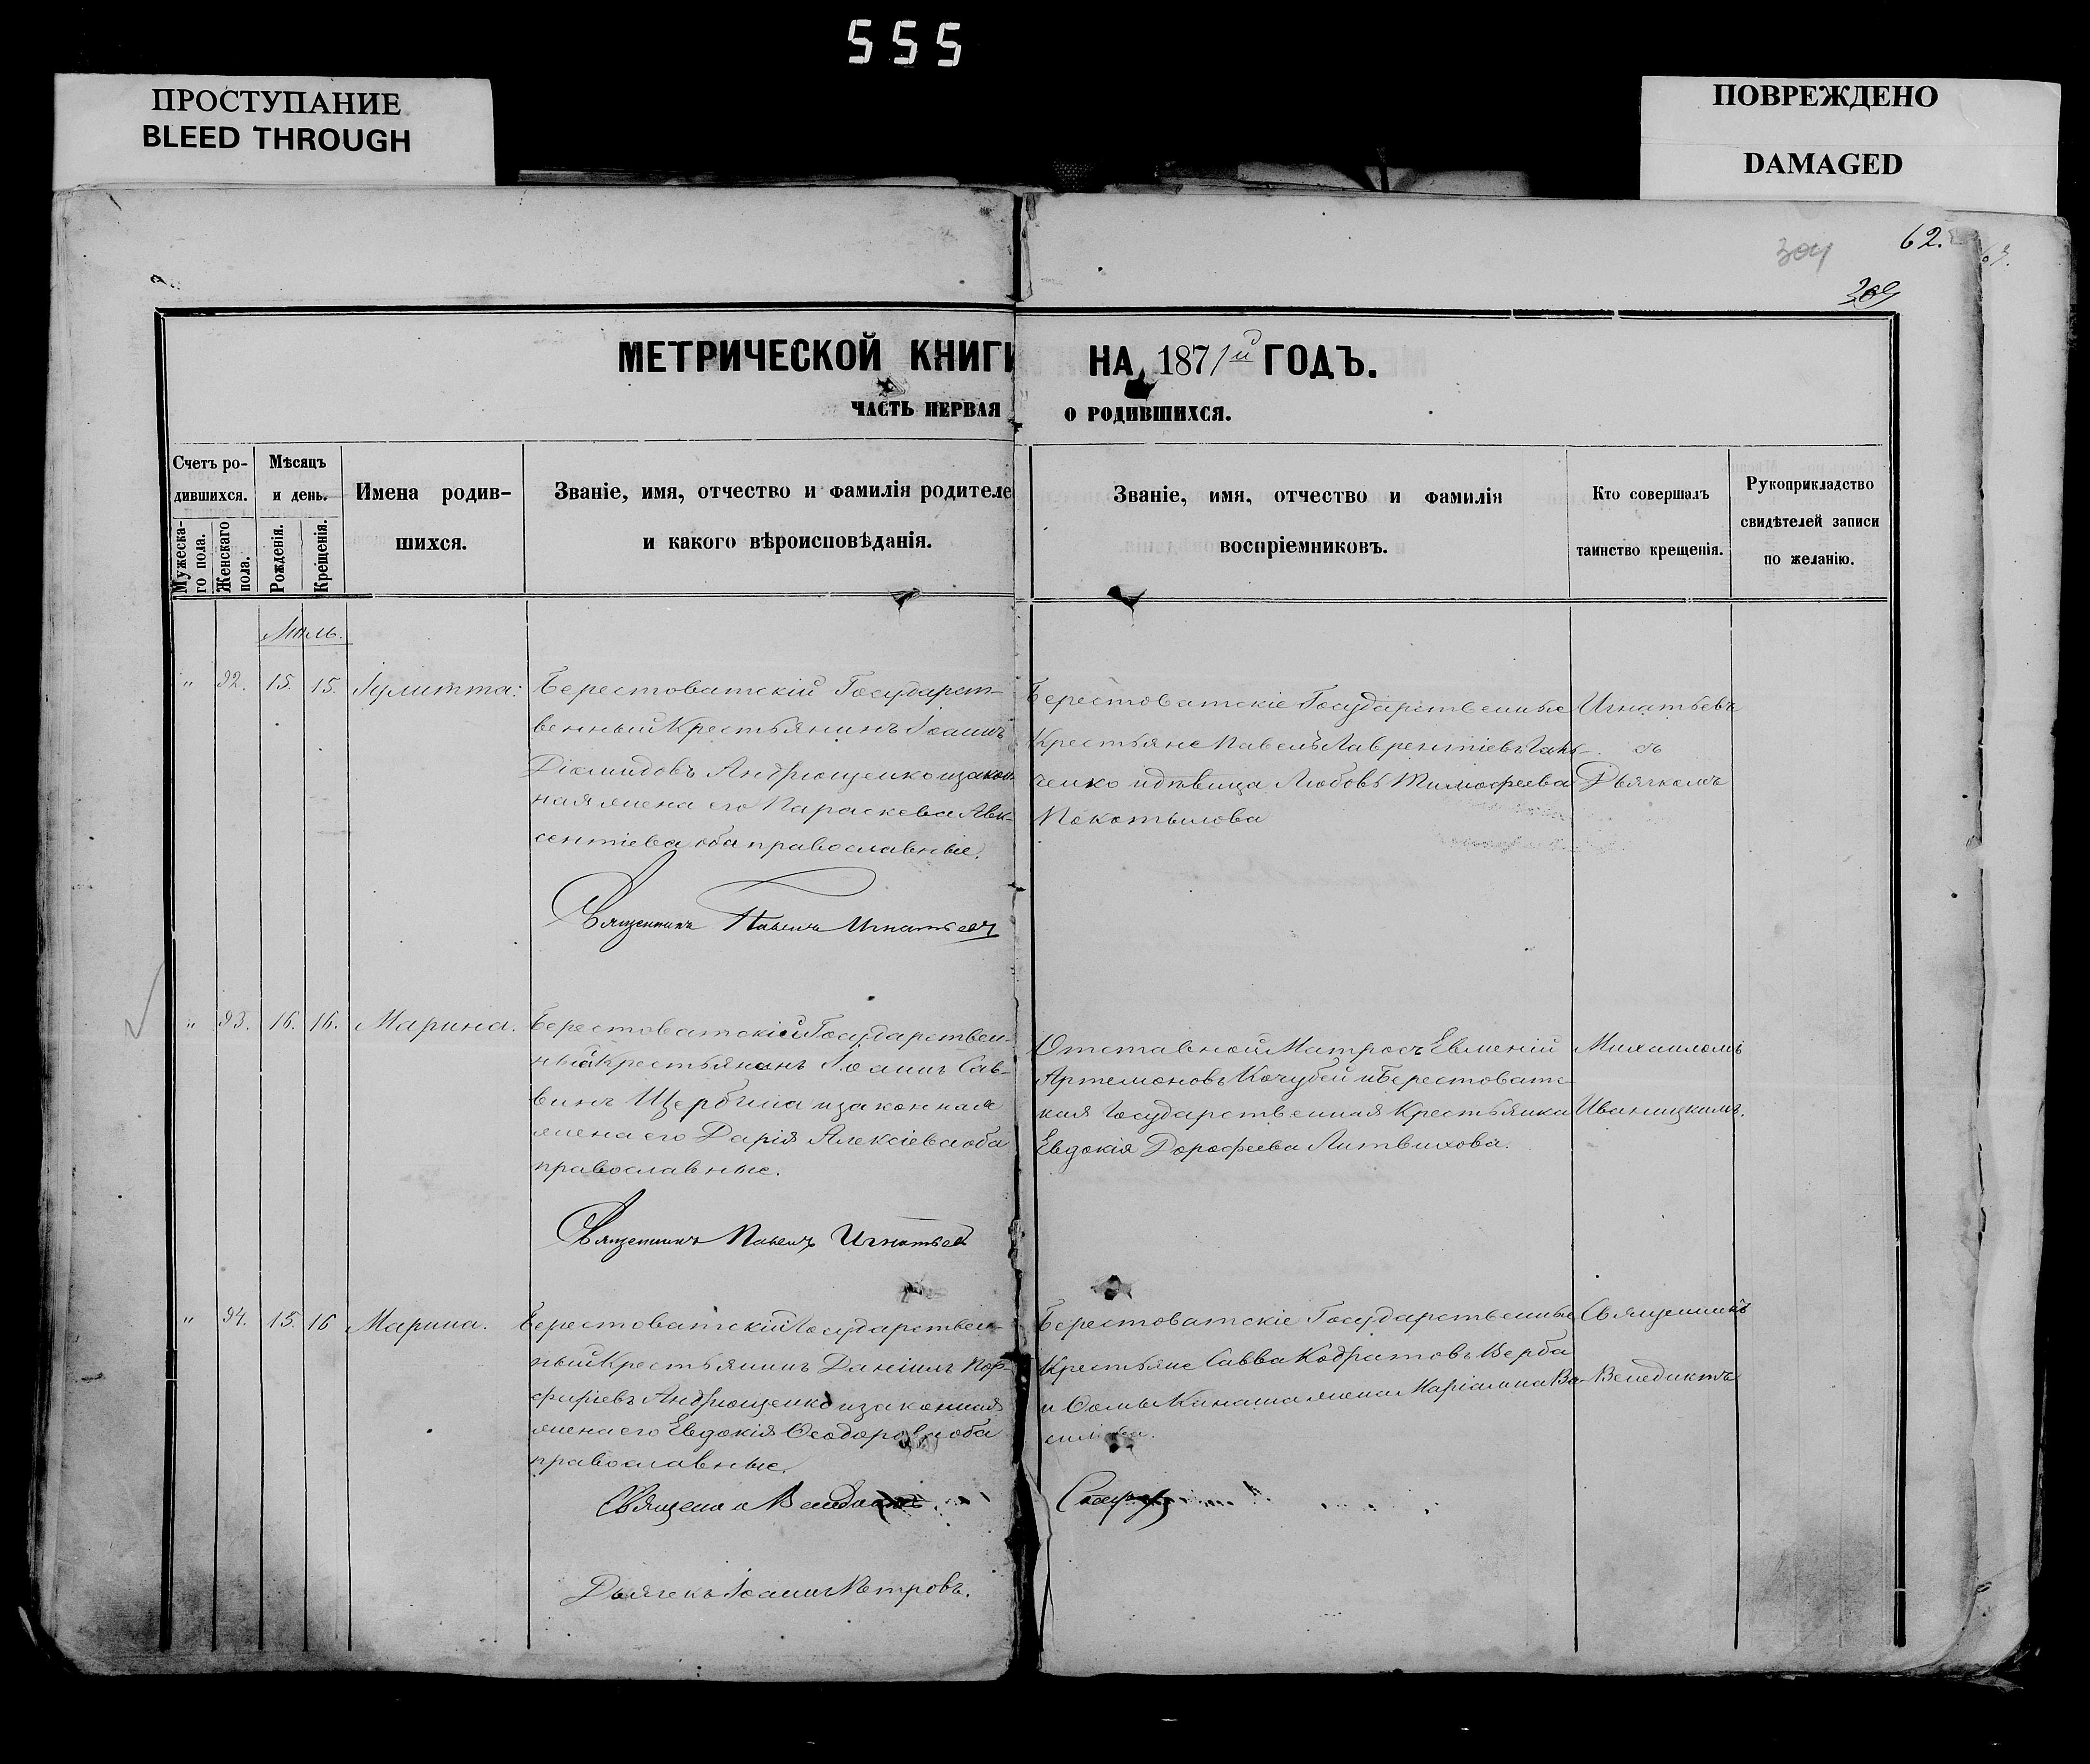 555
ПРОСТУПАНИЕ
BLEED THROUGH
ПОВРЕЖДЕНО
DAMAGED
62.
304
МЕТРИЧЕСКОЙ КНИГИ НА 1871й ГОДЪ.
ЧАСТЬ ПЕРВАЯ О РОДИВШИХСЯ.
Счетъ ро-
дившихся.
Мужеска-
го пола.
Женскаго
пола.
Мѣсяцъ
и день.
Рожденія.
Крещенія.
Имена родив-
шихся.
Званіе, имя, отчество и фамилія родителе
и какого вѣроисповѣданія.
Званіе, имя, отчество и фамилія
воспріемниковъ.
Кто совершалъ
таинство крещенія.
Рукоприкладство
свидѣтелей записи
по желанію.
"
92.
15.
15.
Іулитта:
Берестоватскій Государст-
венный Крестьянинъ Іоаннъ
Діомидовъ Андрющенко и закон
ная жена его Параскева Авк-
сентіева оба православные.
Священникъ Павелъ Игнатьев
Берестоватскіе Государственные
Крестьяне Павелъ Лаврентіевъ
ченко и дѣвица Любовь Тимофеева
Покотылова
Игнатьевъ
съ
Дьячкомъ
"
93.
16.
16.
Марина.
Берестоватскій Государствен-
ный Крестьянинъ Іоаннъ Сав-
винъ Щербина и законная
жена его Дарія Алексіева оба
православные.
Священникъ Павелъ Игнатьев
Отставной Матросъ Евменій
Артемоновъ Кочубей и Берестоватс-
кая Государственная Крестьянка
Евдокія Дорофеева Литвинова.
Михаиломъ
Иваницкимъ.
"
94.
15.
16
Марина.
Берестоватскій Государствен-
ный Крестьянинъ Даніилъ Пор-
фиріевъ Андрющенко и законная
жена его Евдокія Ѳеодорова оба
православные.
Дьячекъ Іоаннъ Петровъ.
Берестоватскіе Государственные
Крестьяне Савва Кодратовъ Верба
и Ѳомы Канаша жена Маріамна Ва-
Священникъ
Венедиктъ